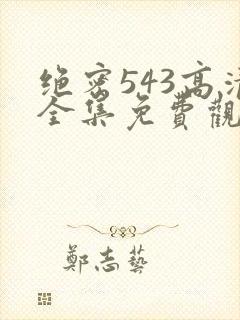 绝密543高
全集免費觀
鄭志藝